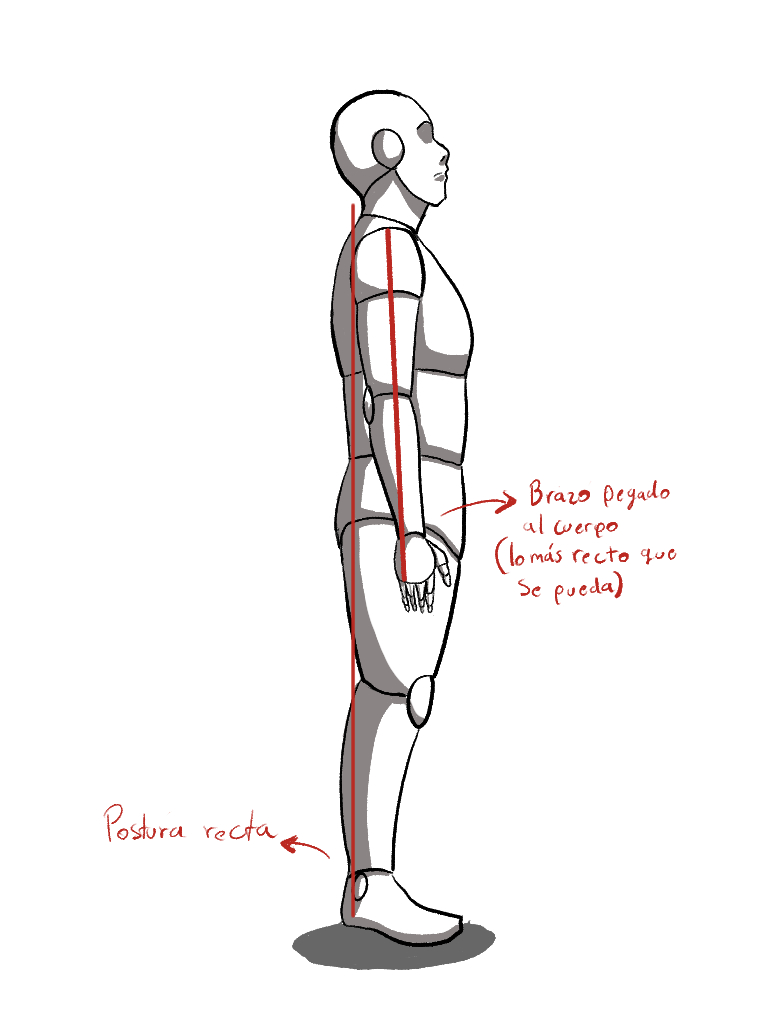 Brazo pegado
al cuerpo
(lo más recto que
se pueda)
Postura recta